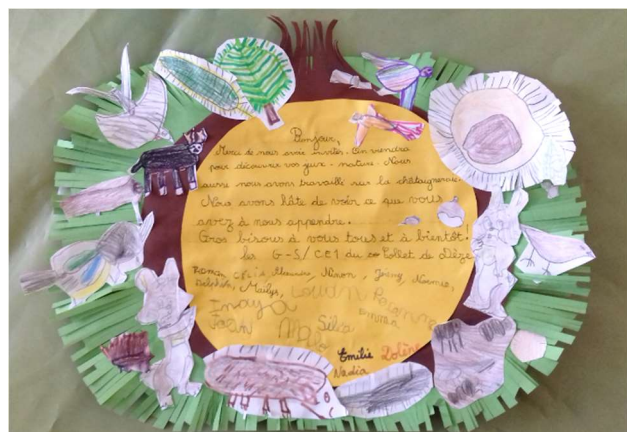 Bonjour,
Merci de nous avoir invités. On viendra
pour découvrir vos jeux - nature. Nous
aussi nous avons travaillé sur la châtaigneraie.
Nous avons hâte de voir ce que vous
avez à nous apprendre.
Gros bisous à vous tous et à bientôt!
les G-S/CE1 du Collet de Dèze
Roman, Célia, Ninon, Joany,
Delphin, Maïlys, Louan
Inaya
Malo Silva
Emilie
Nadia